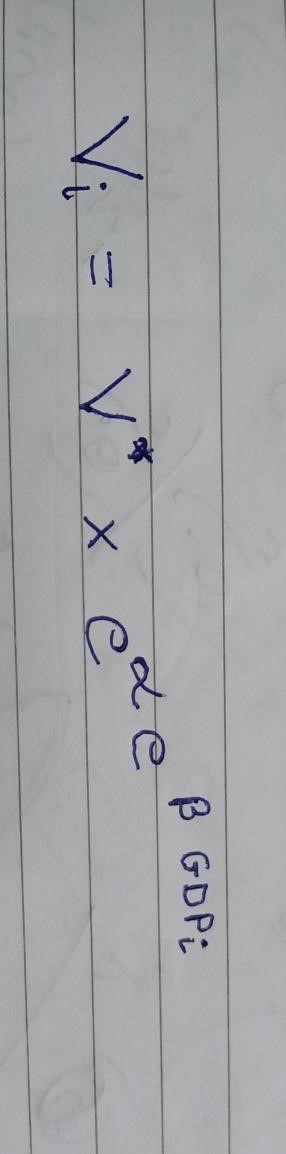 V_i = V^* × e^{α e^{β GDP_i}}